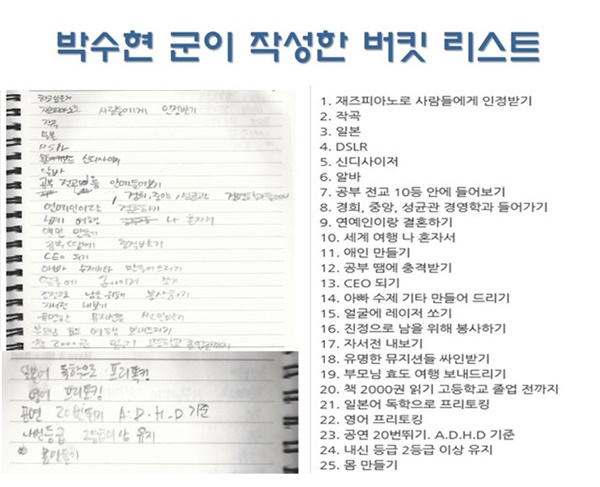 박수현 군이 작성한 버킷 리스트
하고싶은거
재즈피아노로 사람들에게 인정받기
작곡
일본
DSLR
신디사이저
알바
공부 전교 10등 안에들어보기
경희, 중앙, 성균관 경영학과들어가기
연예인이랑 결혼하기
세계 여행 나 혼자서
애인 만들기
공부 땜에 충격받기
CEO 되기
아빠 수제기타 만들어드리기
얼굴에 레이저 쏘기
진정으로 남을 위해 봉사하기
자서전 내보기
유명한 뮤지션들 싸인받기
부모님 효도 여행 보내드리기
책 2000권 읽기 고등학교 졸업전까지
일본어 독학으로 프리톡킹
영어 프리토킹
공연 20번뛰기 A.D.H.D 기준
내신등급 2등급이상 유지
몸만들기
1. 재즈피아노로 사람들에게 인정받기
2. 작곡
3. 일본
4. DSLR
5. 신디사이저
6. 알바
7. 공부 전교 10등 안에 들어보기
8. 경희, 중앙, 성균관 경영학과 들어가기
9. 연예인이랑 결혼하기
10. 세계 여행 나 혼자서
11. 애인 만들기
12. 공부 땜에 충격받기
13. CEO 되기
14. 아빠 수제 기타 만들어 드리기
15. 얼굴에 레이저 쏘기
16. 진정으로 남을 위해 봉사하기
17. 자서전 내보기
18. 유명한 뮤지션들 싸인받기
19. 부모님 효도 여행 보내드리기
20. 책 2000권 읽기 고등학교 졸업 전까지
21. 일본어 독학으로 프리토킹
22. 영어 프리토킹
23. 공연 20번뛰기. A.D.H.D 기준
24. 내신 등급 2등급 이상 유지
25. 몸 만들기